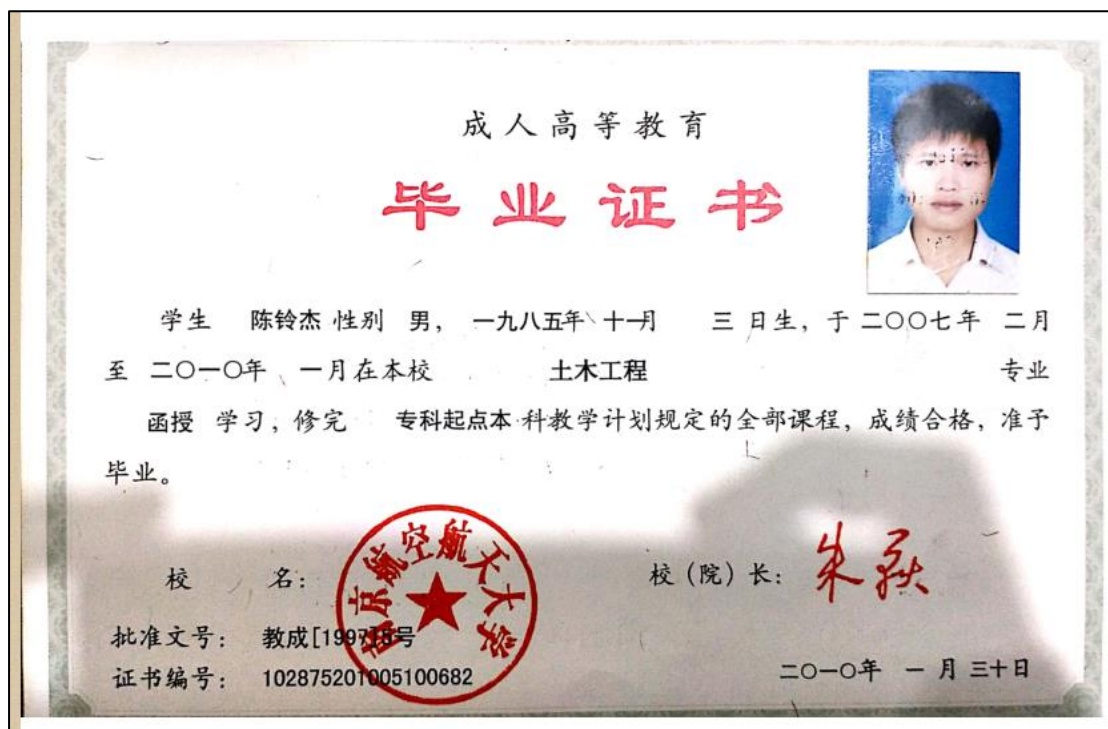 成人高等教育
毕业证书
学生 陈铃杰 性别 男， 一九八五年 十一月 三 日生，于 二〇〇七年 二月
至 二〇一〇年 一月在本校 土木工程 专业
函授 学习，修完 专科起点本 科教学计划规定的全部课程，成绩合格，准予
毕业。
校 名： 南京航空航天大学
校（院）长： 朱荻
批准文号： 教成[1997]8号
证书编号： 102875201005100682
二〇一〇年 一 月 三十日